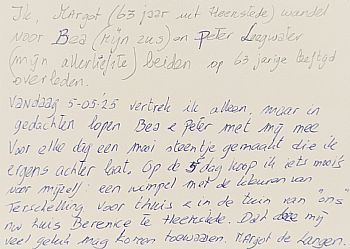 Ik, Margot (63 jaar uit Heemstede) wandel
voor Bea (mijn zus) en Peter Laagwater
(mijn allerliefste) beiden op 63 jarige leeftijd
overleden.
Vandaag 5-05'25 vertrek ik alleen, maar in
gedachten lopen Bea & Peter met mij mee
Voor elke dag een mooi steentje gemaakt die ik
ergens achter laat. Op de 5e dag koop ik iets moois
voor mijzelf: een wimpel met de kleuren van
Terschelling voor thuis & in de tuin van "ons"
huis Berenke te Heemstede. Dat deze mij
veel geluk mag komen toewaaien. Margot de Langen